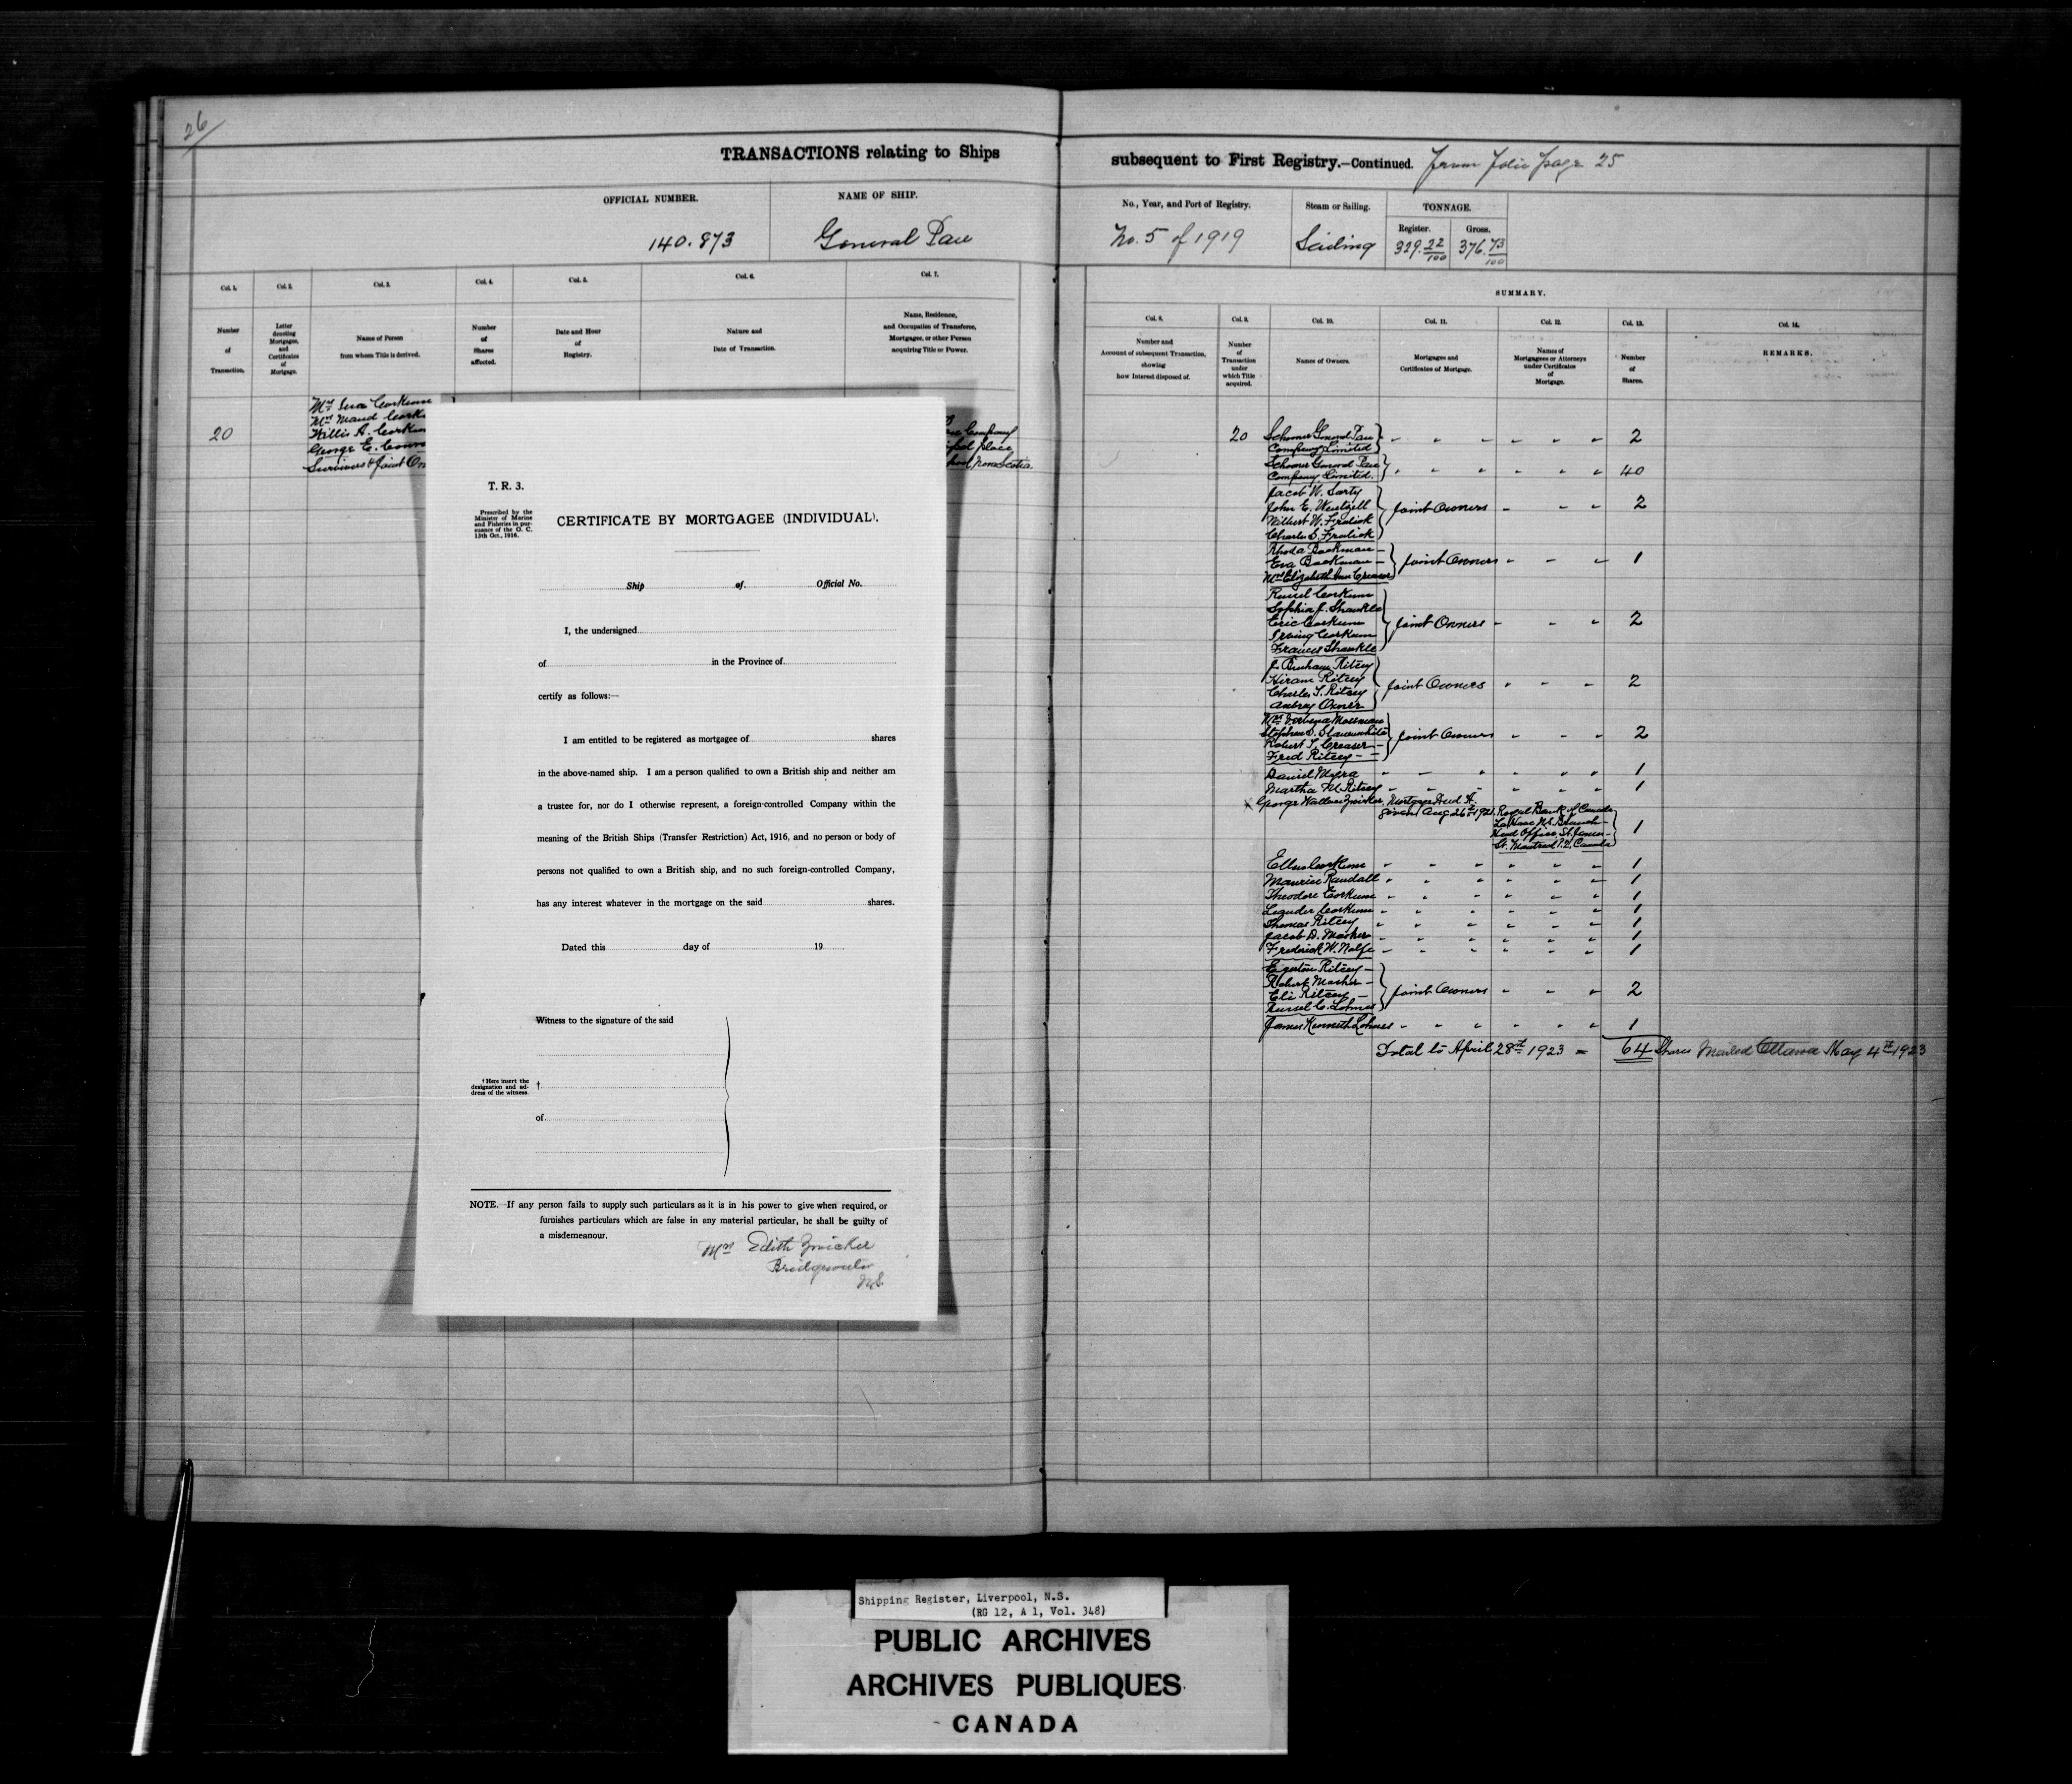 26
TRANSACTIONS relating to Ships
OFFICIAL NUMBER.
NAME OF SHIP.
140.873
General Pau
Col. 1.
Col. 2.
Col. 3.
Col. 4.
Col. 5.
Col. 6.
Col. 7.
Number
of
Transaction.
Letter
denoting
Mortgages,
and
Certificates
of
Mortgage.
Name of Person
from whom Title is derived.
Number
of
Shares
affected.
Date and Hour
of
Registry.
Nature and
Date of Transaction.
Name, Residence,
and Occupation of Transferee,
Mortgagee, or other Person
acquiring Title or Power.
20
Mrs Corkum
Mrs Maud Cork
Willis A. Corkum
George E.
Survivors & Joint
Company
place
Nova Scotia
T. R. 3.
Prescribed by the
Minister of Marine
and Fisheries in pur-
suance of the O. C.
13th Oct., 1916.
CERTIFICATE BY MORTGAGEE (INDIVIDUAL).
Ship of Official No.
I, the undersigned
of in the Province of
certify as follows:—
I am entitled to be registered as mortgagee of shares
in the above-named ship. I am a person qualified to own a British ship and neither am
a trustee for, nor do I otherwise represent, a foreign-controlled Company within the
meaning of the British Ships (Transfer Restriction) Act, 1916, and no person or body of
persons not qualified to own a British ship, and no such foreign-controlled Company,
has any interest whatever in the mortgage on the said shares.
Dated this day of 19
Witness to the signature of the said
† Here insert the
designation and ad-
dress of the witness.
†
of
NOTE.—If any person fails to supply such particulars as it is in his power to give when required, or
furnishes particulars which are false in any material particular, he shall be guilty of
a misdemeanour.
Mrs Edith Zwicker
Bridgewater
N.S.
subsequent to First Registry.—Continued. From Folio page 25
No., Year, and Port of Registry.
Steam or Sailing.
TONNAGE.
Register.
Gross.
No. 5 of 1919
Sailing
329.22/100
376.73/100
SUMMARY.
Col. 8.
Col. 9.
Col. 10.
Col. 11.
Col. 12.
Col. 13.
Col. 14.
Number and
Account of subsequent Transaction,
showing
how Interest disposed of.
Number
of
Transaction
under
which Title
acquired.
Names of Owners.
Mortgages and
Certificates of Mortgage.
Names of
Mortgagees or Attorneys
under Certificates
of
Mortgage.
Number
of
Shares.
REMARKS.
20 Schooner General Pau
Company Limited 2
Schooner General Pau
Company Limited. 40
Jacob W. Sarty
John E. Wentzell Joint Owners 2
Wilbert W. Fralick
Charles S. Fralick
Rhoda Backman
Eva Backman Joint Owners 1
Mrs Elizabeth Ann Creaser
Russel Corkum
Sophia J. Shankle
Eric Corkum Joint Owners 2
Irving Corkum
Frances Shankle
J. Burham Ritcey
Hiram Ritcey
Charles S. Ritcey Joint Owners 2
Aubrey Oxner
Mrs Mossman
Stephen D. Slauenwhite
Robert S. Creaser Joint Owners 2
Fred Ritcey
Daniel Myra 1
Martha M. Ritcey 1
George Wallace Zwicker, Mortgage Deed A.
given Aug 26th 1921. Royal Bank of Canada
La Have N.S. Branch
Head Office, St. James 1
St. Montreal P.Q. Canada
Ellen Corkum 1
Maurice Randall 1
Theodore Corkum 1
Leander Corkum 1
Thomas Ritcey 1
Jacob D. Mosher 1
Frederick W. Wolfe 1
Egerton Ritcey
Robert Mosher
Eli Ritcey Joint Owners 2
Russel C. Lohnes
James Kenneth Lohnes 1
Total to April 28th 1923 = 64 Shares Mailed Ottawa May 4th 1923
Shipping Register, Liverpool, N.S.
(RG 12, A 1, Vol. 348)
PUBLIC ARCHIVES
ARCHIVES PUBLIQUES
CANADA